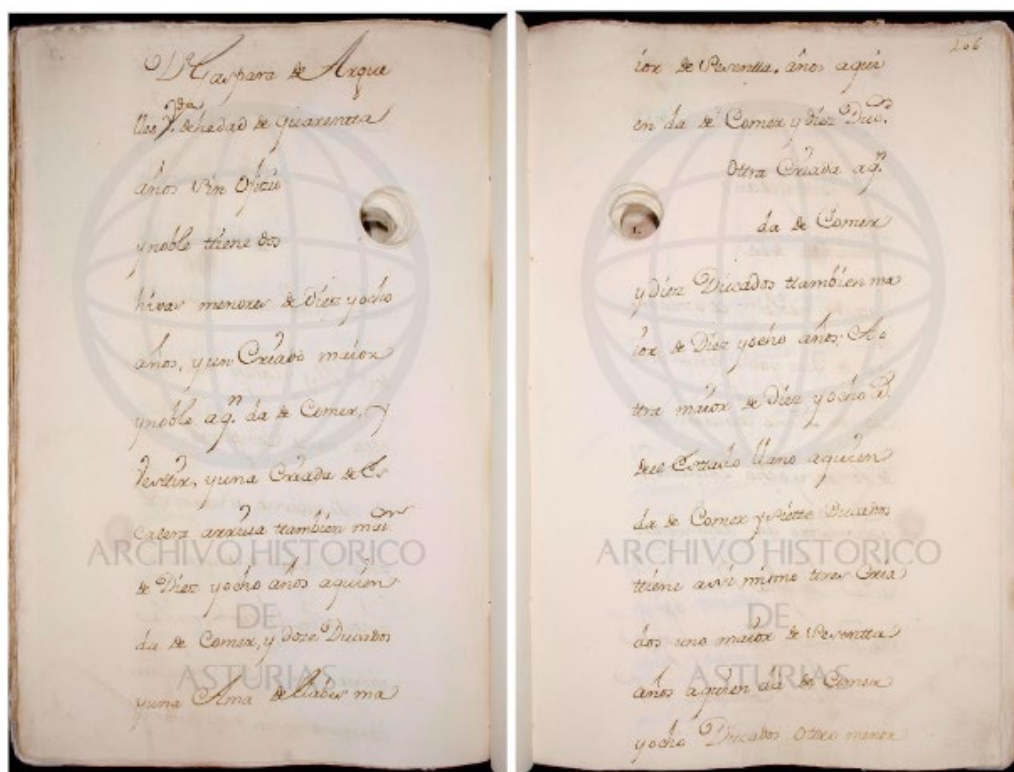 Dª Gaspara de Argue
lles V.da de hedad de quarentta
años sin ofizio
y noble ttiene dos
hixas menores de diez y ocho
años, y un Criado maior
y noble a q.n da de Comer, y
Vesttir, y una Criada de Es
calera arriva ttambien maior
de Diez y ocho años aquien
da de Comer, y doze Ducados
y una Ama de llabes ma
206
ior de Sesentta años aqui
en da de Comer y diez Duc.s
Ottra Criada a q.n
da de Comer
1.
y diez Ducados ttambien ma
ior de Diez yocho años, Ao
ttra maior de Diez y ocho a.s
de el Esttado llano aquien
da de Comer y siette Ducados
ttiene assi mismo tres Cria
dos uno maior de Sesentta
años aquien da de Comer
y ocho Ducados Ottro menor
ARCHIVO HISTORICO
DE
ASTURIAS
ARCHIVO HISTORICO
DE
ASTURIAS